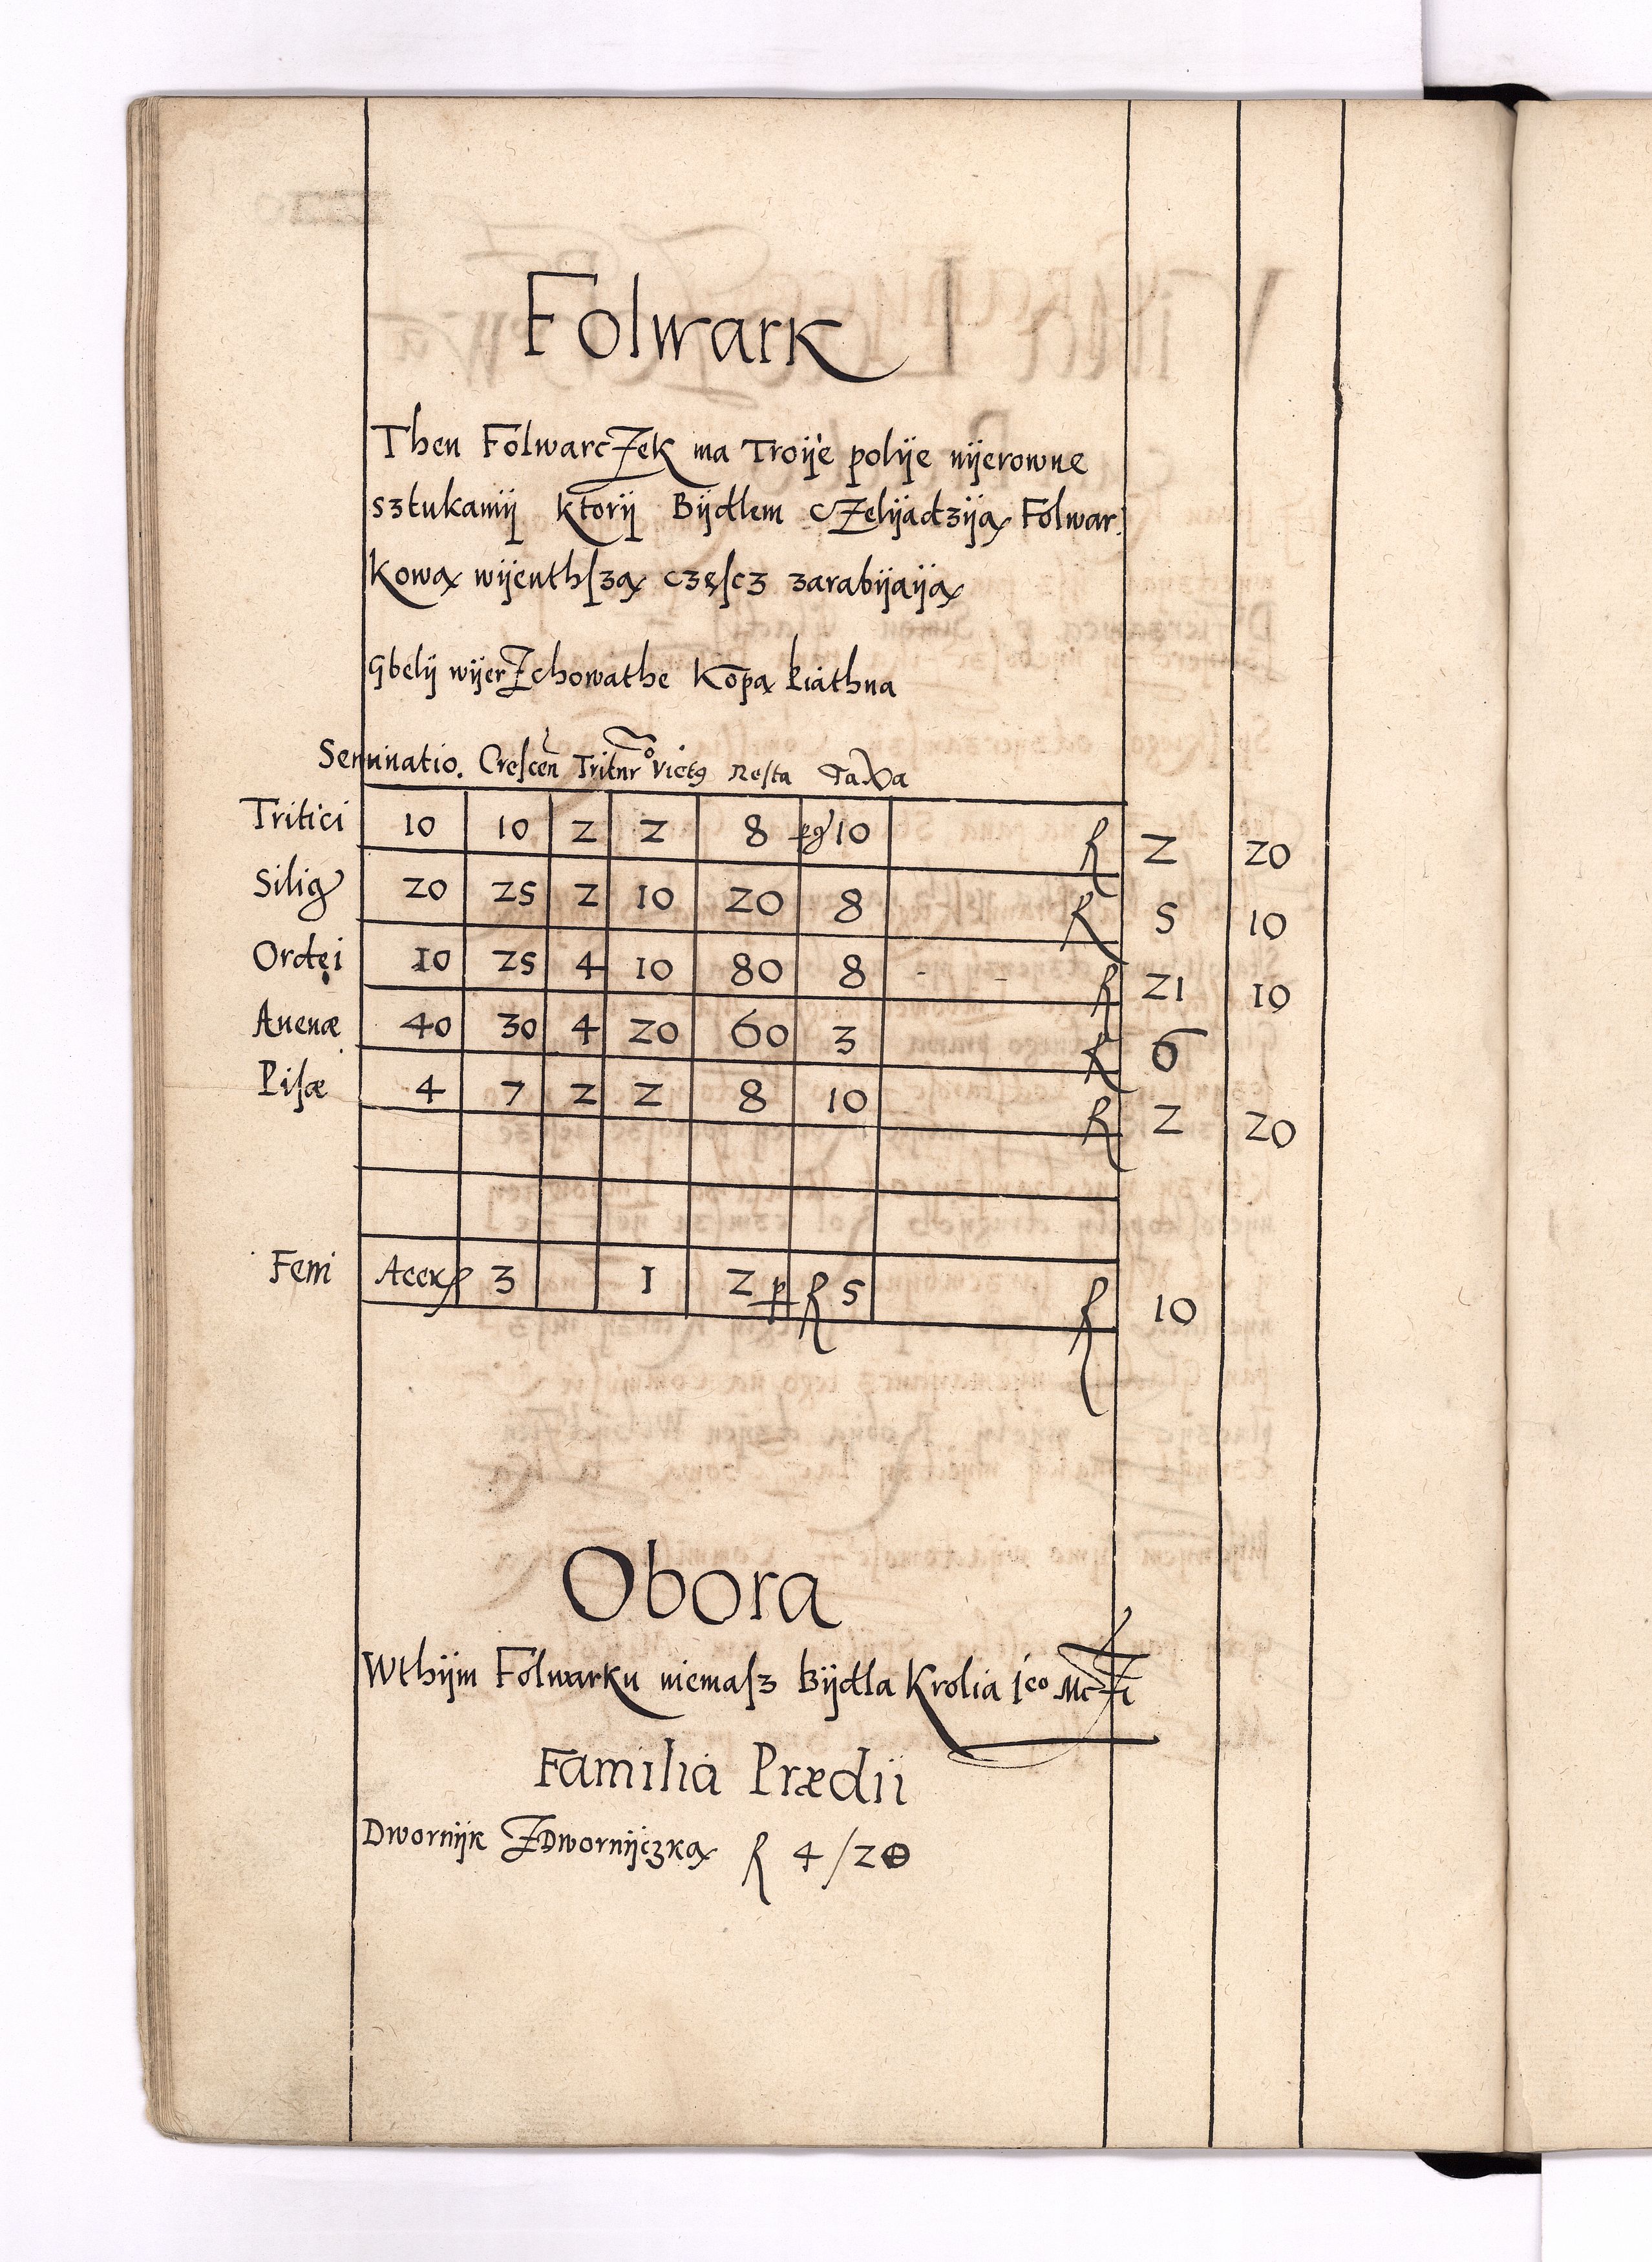 Folwark
Then Folwarczek ma Troije polije nijerowne
sztukamij ktorij Bijdlem czelijadzija̧ Folwar
kowa̧ wijenthſza̧ czȩſcz zarabijaija̧
Gbelij wijerzchowathe Kopa̧ kiáthna
Seminatio. Creſcen Tritur Victꝯ Reſta Taxa
Tritici 10 10 2 2 8 10 f 2 20
Silig 20 25 2 10 20 8 f 5 10
Ordei 10 25 4 10 80 8 f 21 10
Auenæ 40 30 4 20 60 3 f 6
Piſæ 4 7 2 2 8 10 f 2 20
Feni 3 1 2 p f 5 f 10
Obora
Wthijm Folwarku niemaſz Bijdla Krolia Ieo Mczi
Familia Prædii
Dwornijk Z Dwornijczka̧ f 4/20